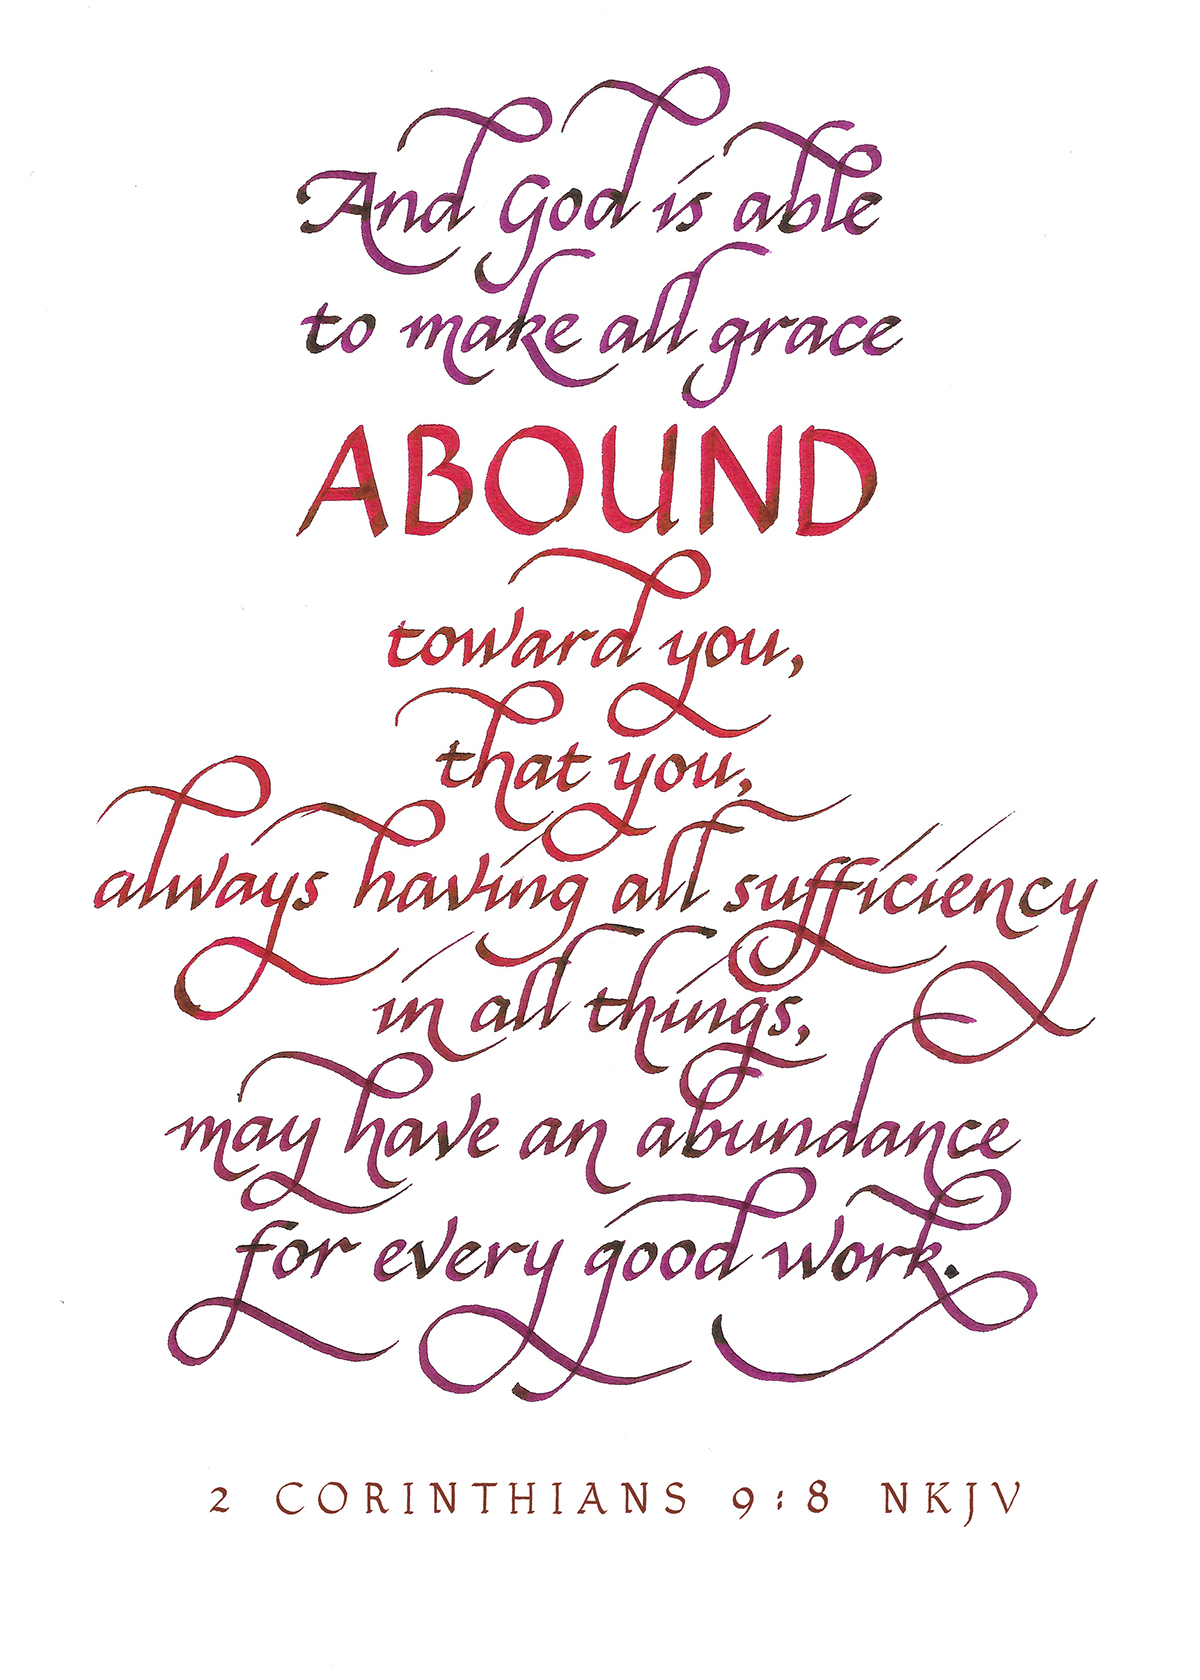 And God is able
to make all grace
ABOUND
toward you,
that you,
always having all sufficiency
in all things,
may have an abundance
for every good work.
2 CORINTHIANS 9:8 NKJV